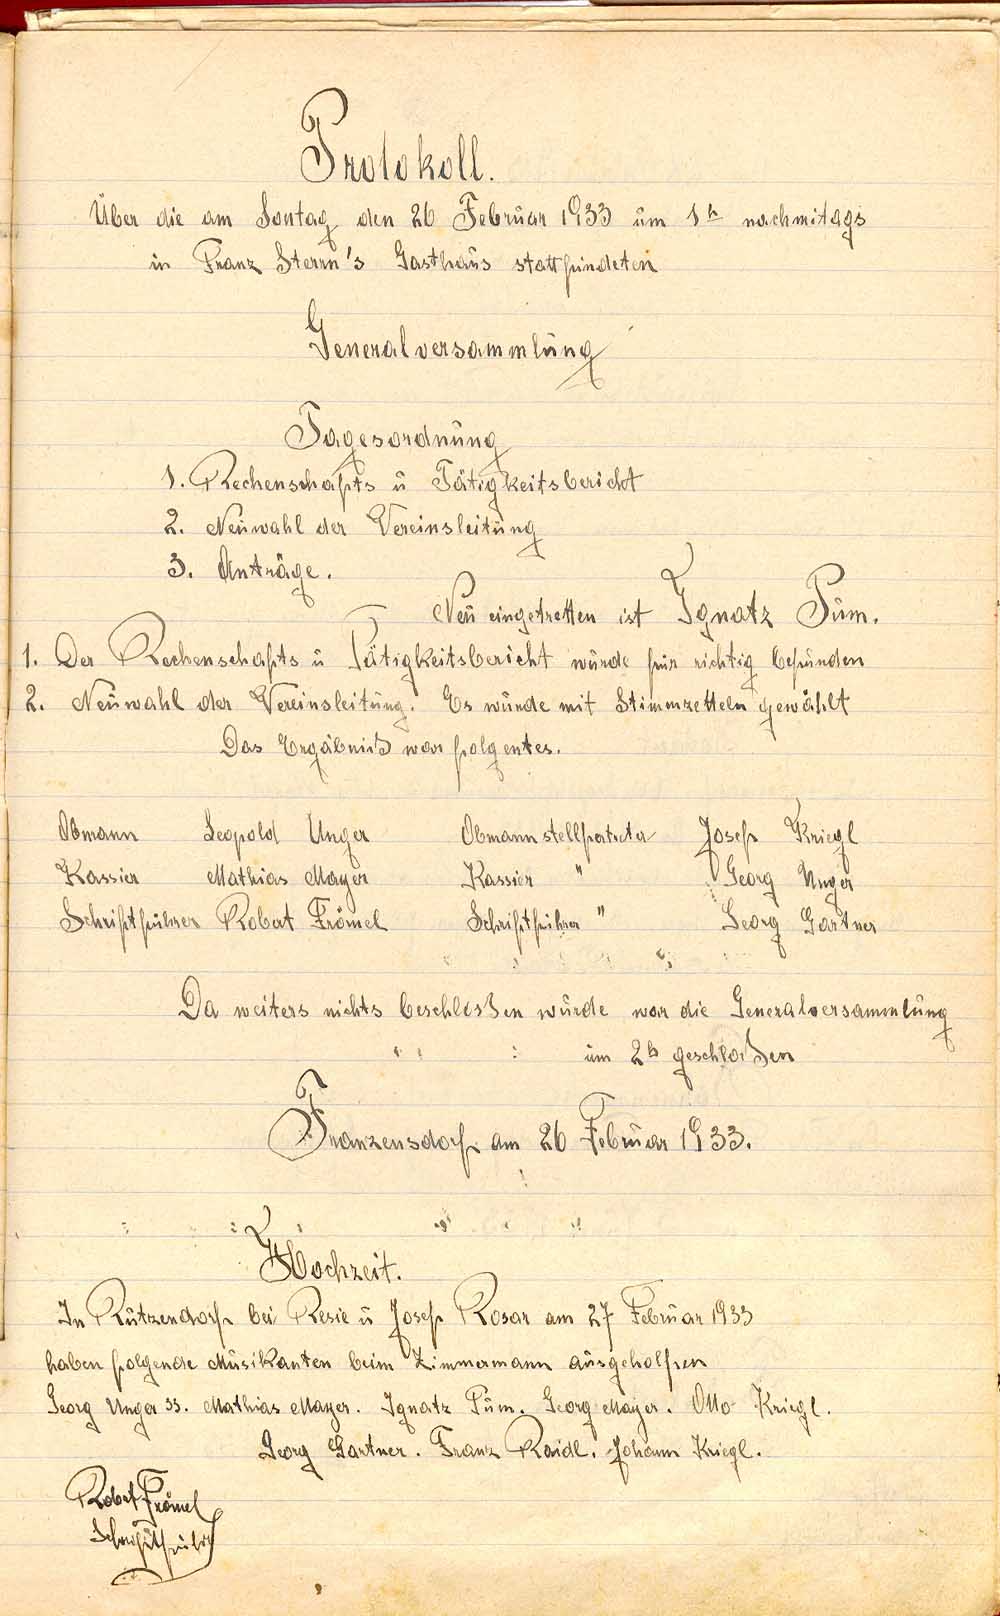 Protokoll.
Über die am Sontag den 26 Februar 1933 um 1h nachmitags
in Franz Sterrn's Gasthaus stattfundeten
Generalversammlung
Tagesordnung
1. Rechenschafts u Tätigkeitsbericht
2. Neuwahl der Vereinsleitung
3. Anträge.
Neu eingetretten ist Ignatz Pum.
1. Der Rechenschafts u Tätigkeitsbericht wurde für richtig befunden
2. Neuwahl der Vereinsleitung. Es wurde mit Stimmzetteln gewählt
Das Ergäbniß war folgentes.
Obmann Leopold Unger Obmann Josef Kriegl
Kassier Mathias Mayer Kassier " Georg Unger
Schriftführer Robert Frömel Schriftführer " Georg Gartner
Da weiters nichts beschloßen wurde war die Generalversammlung
um 2h geschloßen
Franzensdorf am 26 Februar 1933.
Hochzeit.
In Rutzendorf bei Resie u Josef Rosar am 27 Februar 1933
haben folgende Musikanten beim Zimmermann ausgeholfen
Georg Unger 33. Mathias Mayer. Ignatz Pum. Georg Mayer. Otto Kriegl.
Georg Gartner. Franz Raidl. Johann Kriegl.
Robert Frömel
Schriftführer